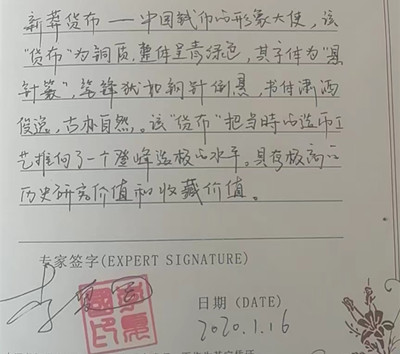 新莽货布——中国钱币的形象大使，该
"货布"为铜质，整体呈青绿色，其字体为"悬
针篆"，笔锋犹如钢针倒悬，书体潇洒
俊逸，古朴自然。该"货布"把当时的造币工
艺推向了一个登峰造极的水平。具有极高的
历史研究价值和收藏价值。
专家签字(EXPERT SIGNATURE)
李
日期 (DATE)
2020.1.16